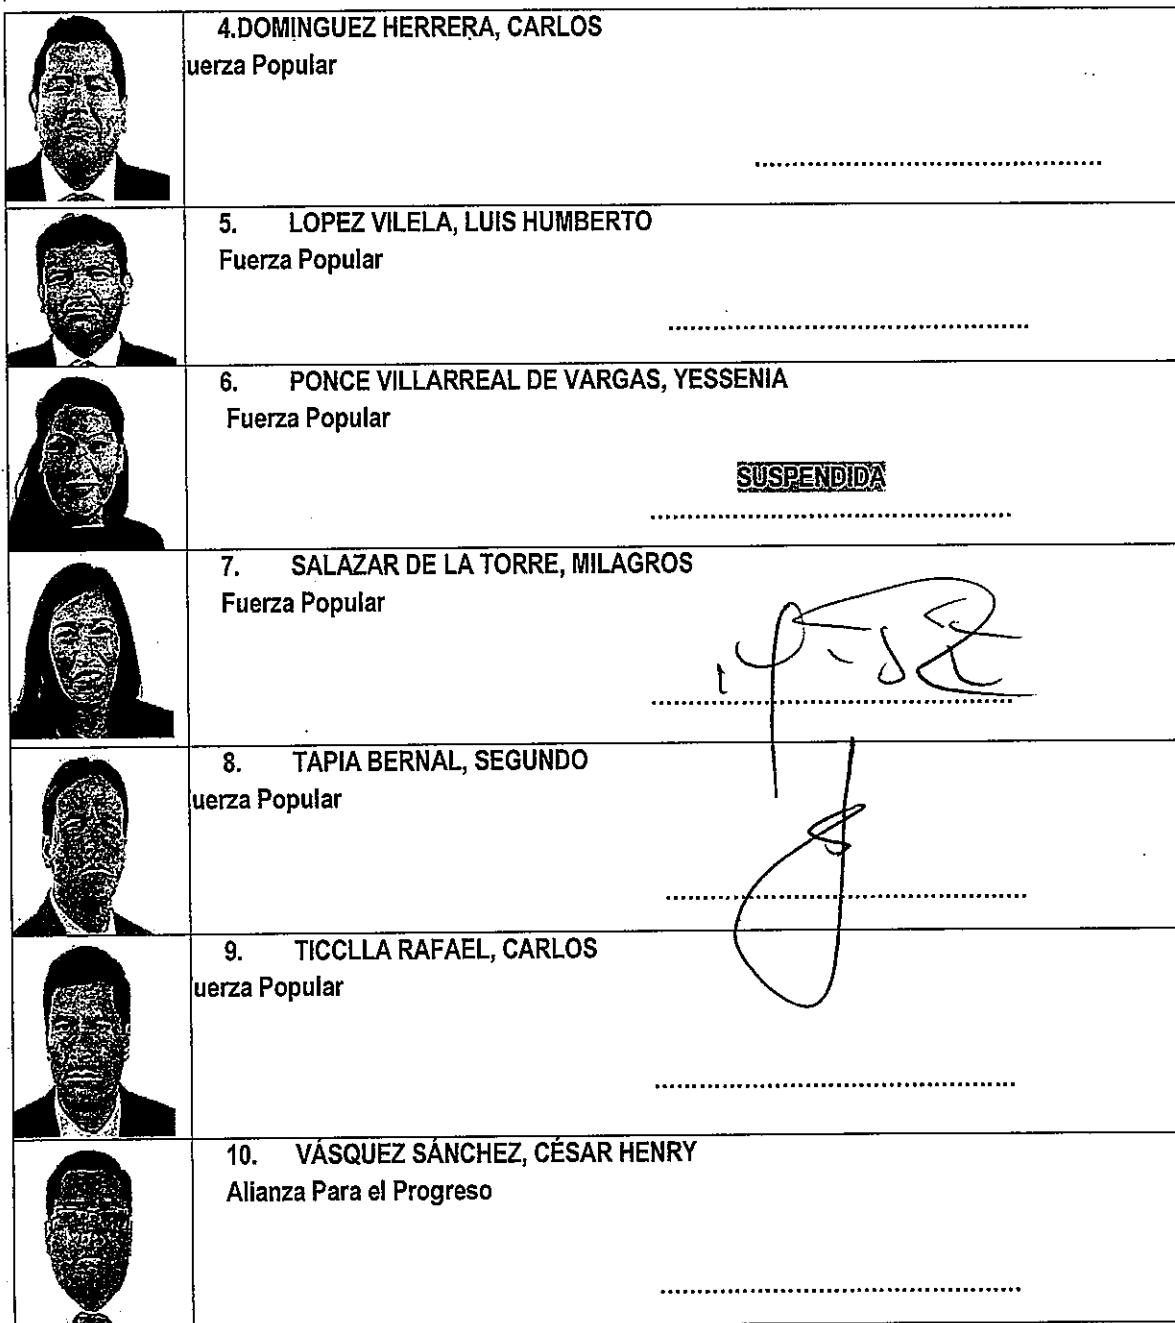 4.DOMINGUEZ HERRERA, CARLOS
uerza Popular
5. LOPEZ VILELA, LUIS HUMBERTO
Fuerza Popular
6. PONCE VILLARREAL DE VARGAS, YESSENIA
Fuerza Popular
SUSPENDIDA
7. SALAZAR DE LA TORRE, MILAGROS
Fuerza Popular
8. TAPIA BERNAL, SEGUNDO
uerza Popular
9. TICCLLA RAFAEL, CARLOS
uerza Popular
10. VÁSQUEZ SÁNCHEZ, CÉSAR HENRY
Alianza Para el Progreso